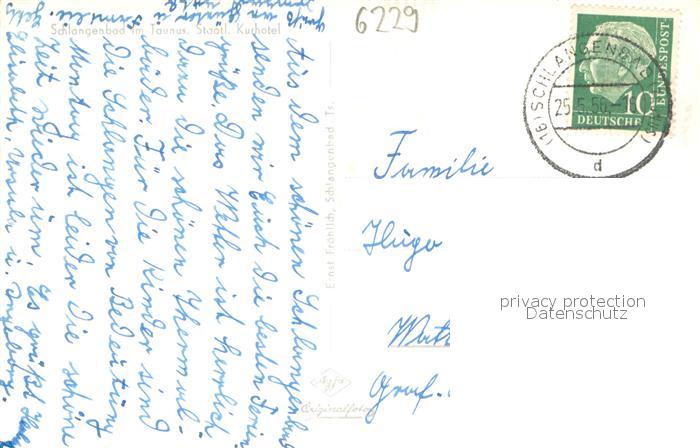 Schlangenbad im Taunus. Staatl. Kurhotel
6229
Aus dem schönen Schlangenbad
senden wir Euch die besten Ferien
grüße. Das Wetter ist herrlich
Dazu die schönen Thermal-
bäder. Für die Kinder sind
die Schlangen von Bedeutung
Montag ist leider die schöne
Zeit wieder um. Es grüßt
Elisabeth, Ursula u. Ingeborg.
Ernst Fröhlich, Schlangenbad Ts.
Agfa
Originalfoto
(16) SCHLANGENBAD
25.5.56.
d
10
DEUTSCHE
BUNDESPOST
Familie
Hugo
Graf-
privacy protection
Datenschutz